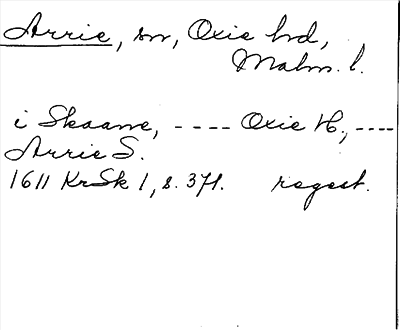 Arrie, sn, Oxie hd,
Malm. l.
i Skaane, ---- Oxie H., ----
Arrie S.
1611 KrSk 1, s. 371. regest.